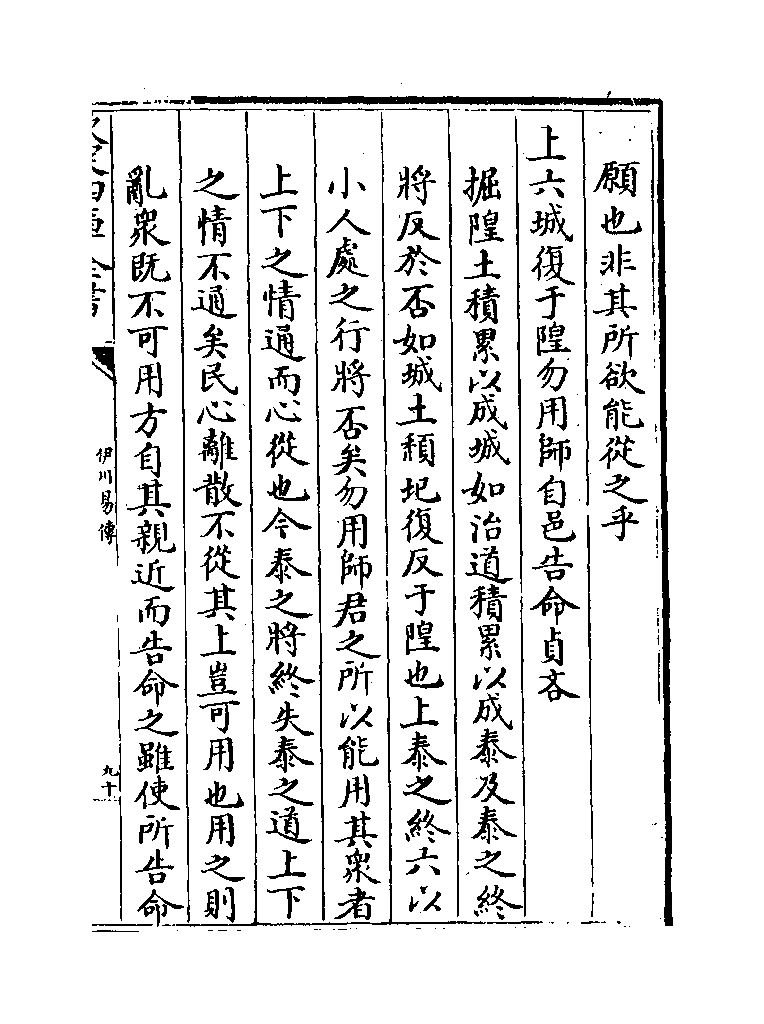 願也非其所欲能從之乎
上六城復于隍勿用師自邑告命貞吝
掘隍土積累以成城如治道積累以成泰及泰之終
將反於否如城土頹圮復反于隍也上泰之終六以
小人處之行將否矣勿用師君之所以能用其衆者
上下之情通而心從也今泰之將終失泰之道上下
之情不通矣民心離散不從其上豈可用也用之則
亂衆既不可用方自其親近而告命之雖使所告命
伊川易傳
九十